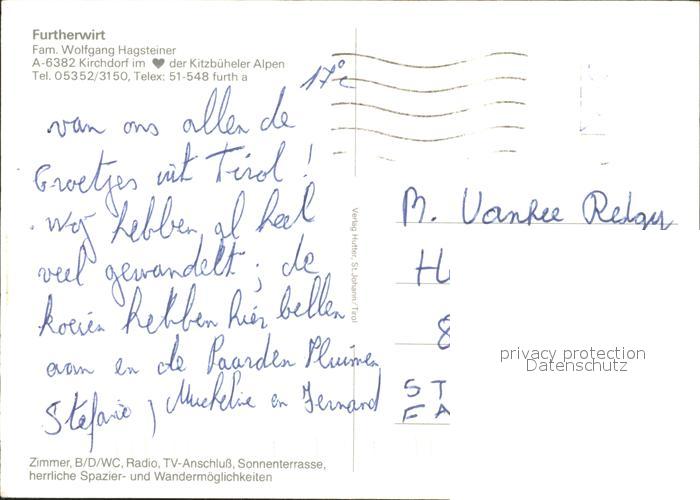 Furtherwirt
Fam. Wolfgang Hagsteiner
A-6382 Kirchdorf im ♥ der Kitzbüheler Alpen
Tel. 05352/3150, Telex: 51-548 furth a
17°c
van ons allen de
Groetjes uit Tirol !
Wij hebben al heel
veel gewandelt ; de
koeien hebben hier bellen
aan en de Paarden Pluimen
Stefanie , en Fernand
Verlag Hutter, St. Johann/Tirol
M. Vanhee
H
8
S T
F A
privacy protection
Datenschutz
Zimmer, B/D/WC, Radio, TV-Anschluß, Sonnenterrasse,
herrliche Spazier- und Wandermöglichkeiten